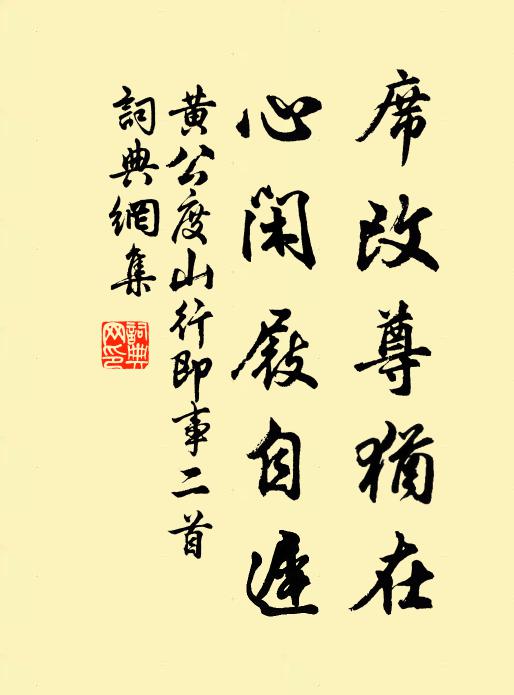 席改尊猶在
心閑屐自遲
黃公度山行即事二首
詞典網集
詞典網印